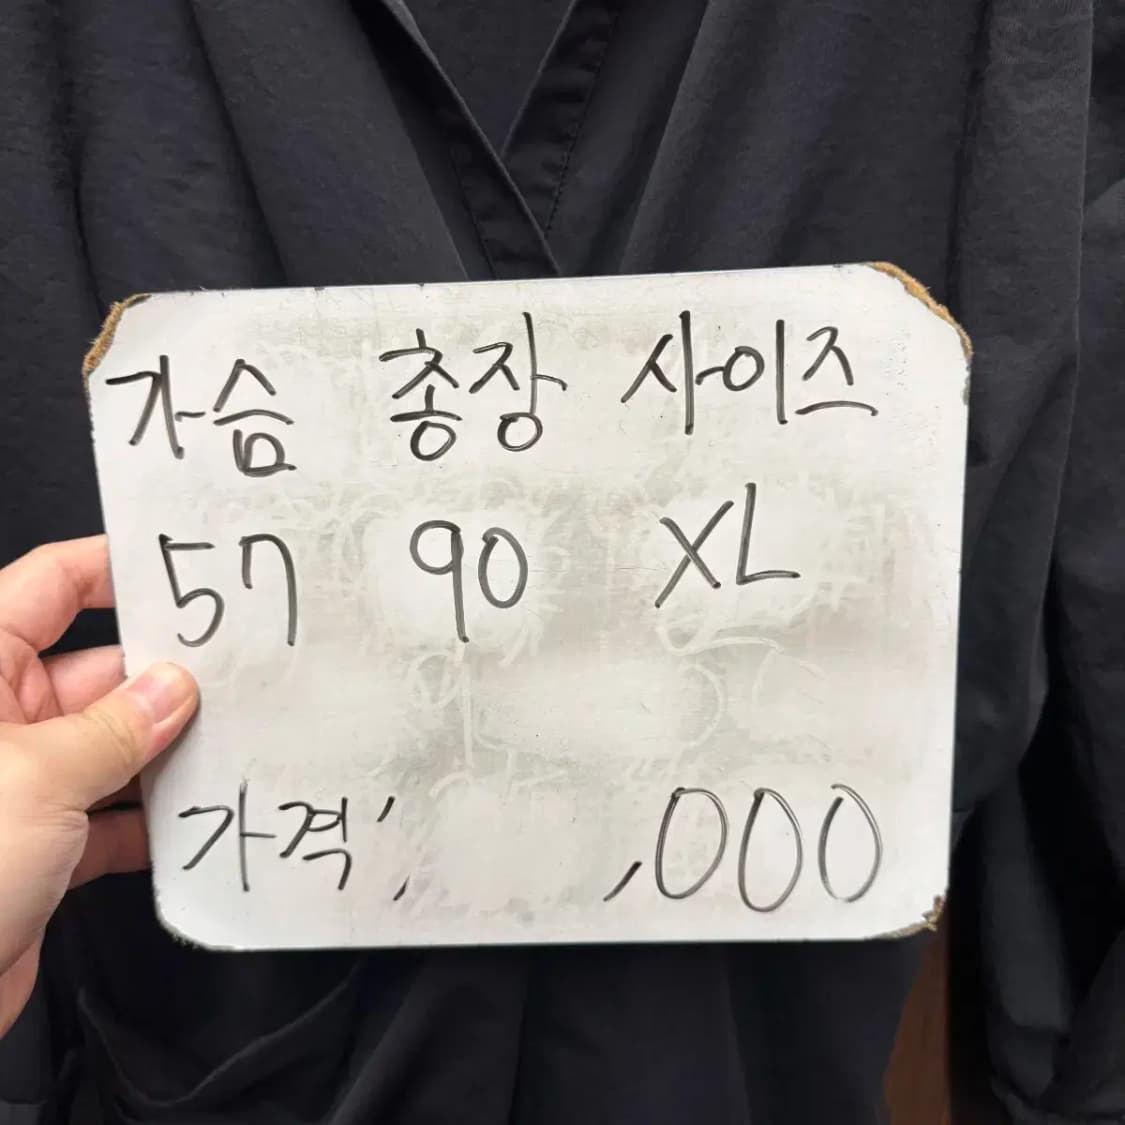 가슴 총장 사이즈
57 90 XL
가격; ,000